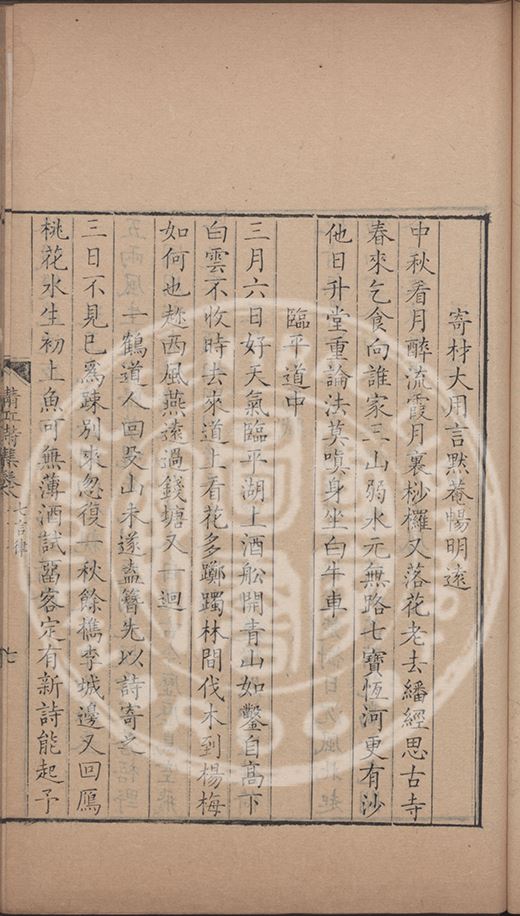 寄材大用言默菴暢明遠
中秋看月醉流霞月裏桫欏又落花老去繙經思古寺
春來乞食向誰家三山弱水元無路七寶恆河更有沙
他日升堂重論法莫嗔身坐白牛車
臨平道中
三月六日好天氣臨平湖上酒舩開青山如鼈自高下
白雲不收時去來道上看花多躑躅林間伐木到楊梅
如何也趂西風燕遠過錢塘又一迴
一鶴道人回吳山未遂盍簪先以詩寄之
三日不見已爲踈別來忽復一秋餘檇李城邊又回鴈
桃花氷生初上魚可無薄酒試畱客定有新詩能起予
詩集
七言律
七